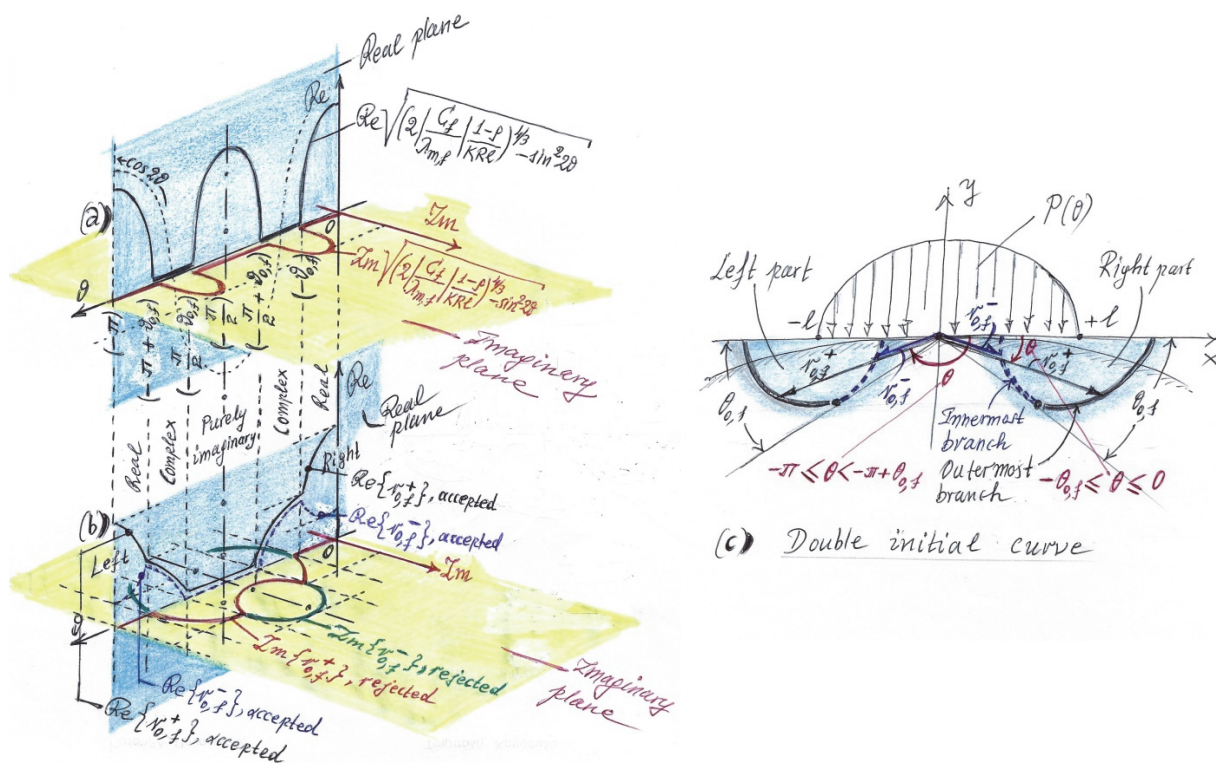 Real plane
Re
Re√(2|C_f/λ_m,f|(1-ρ)/KRl)^{1/3} - sin²2θ
←cos2θ
(a)
0
Im
Im√(2|C_f/λ_m,f|(1-ρ)/KRl)^{1/3} - sin²2θ
θ
(-π)
(-π+θ_0,f)
(-π/2-θ_0,f)
(-π/2)
(-π/2+θ_0,f)
(-θ_0,f)
Imaginary plane
Real
Complex
Purely
imaginary
Complex
Real
Re
Real
plane
Right
Re{r⁺_0,f}, accepted
(b)
Re{r⁻_0,f}, accepted
Left
0
Im
θ
Im{r⁻_0,f}, rejected
Im{r⁺_0,f}, rejected
Imaginary
plane
Re{r⁻_0,f}, accepted
Re{r⁺_0,f}, accepted
y
P(θ)
Left part
Right part
-l
r⁻_0,f
+l
x
θ
r⁺_0,f
r⁺_0,f
r⁻_0,f
θ
θ_0,f
θ_0,f
Innermost
branch
Outermost
branch
-π≤θ<-π+θ_0,f
-θ_0,f≤θ≤0
(c) Double initial curve